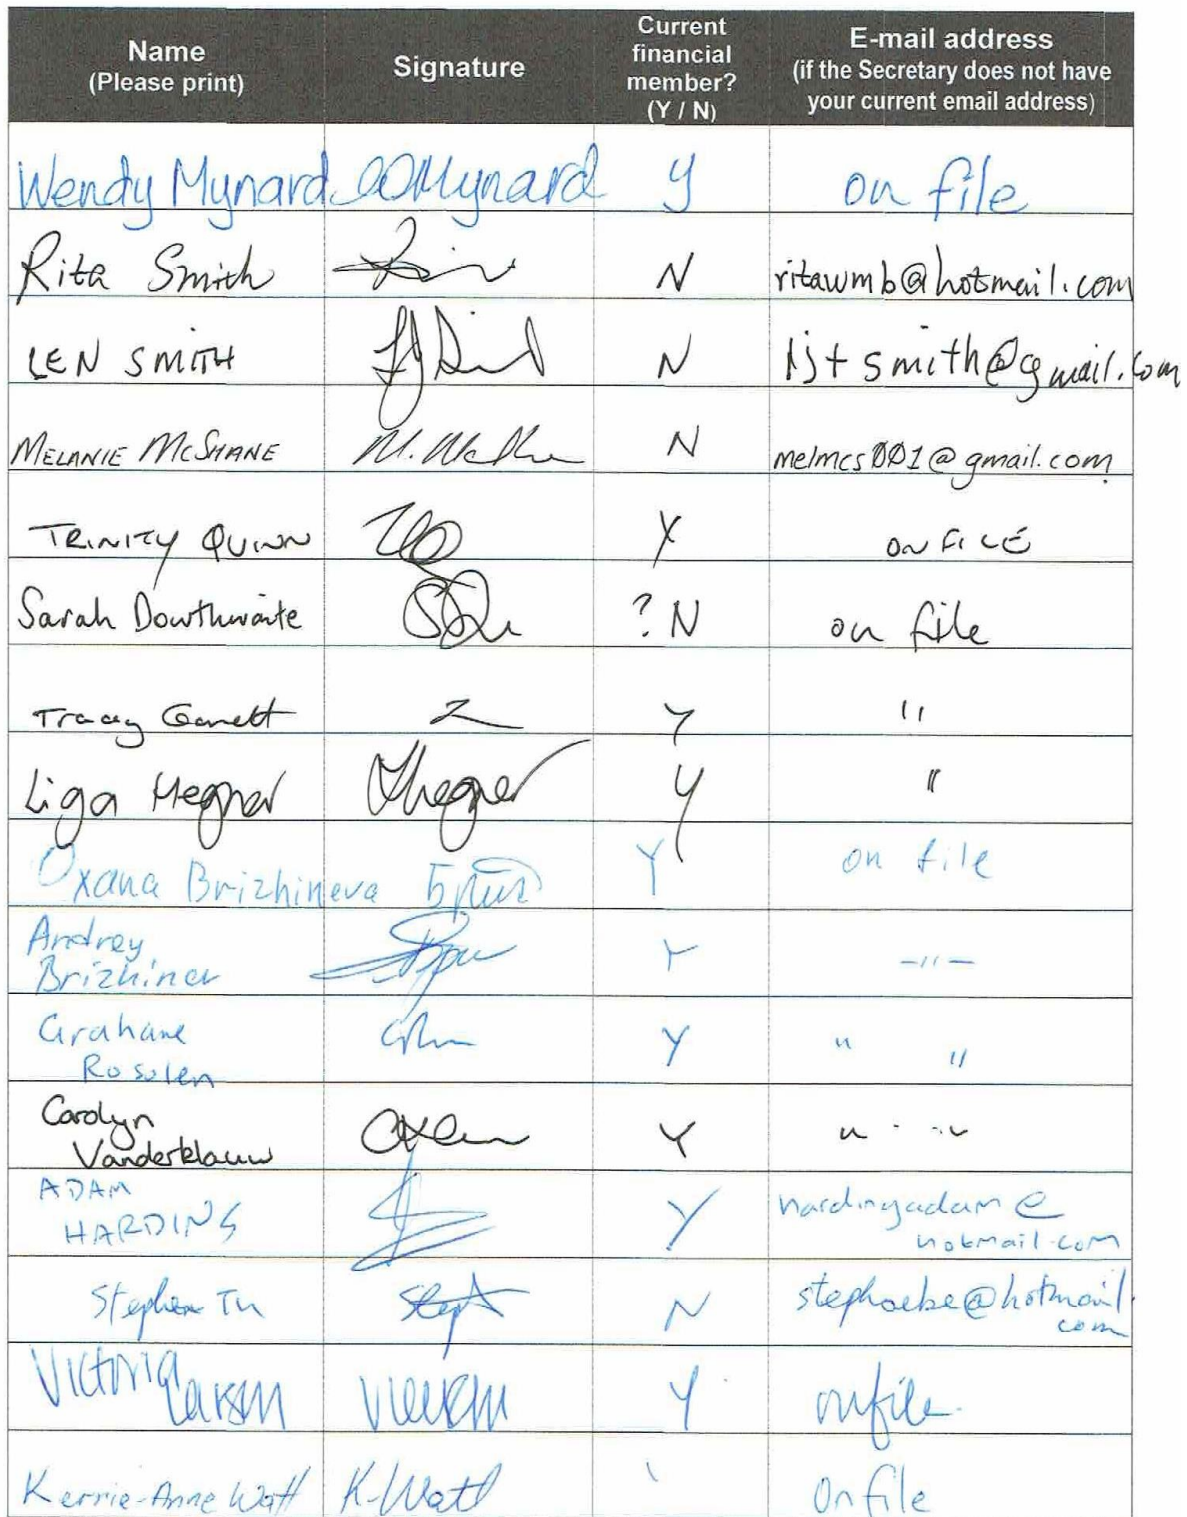 Name
(Please print)
Signature
Current
financial
member?
(Y / N)
E-mail address
(if the Secretary does not have
your current email address)
Wendy Mynard WMynard Y on file
Rita Smith N ritawmb@hotmail.com
LEN SMITH N ljtsmith@gmail.com
MELANIE MCSHANE N melmcs001@gmail.com
TRINITY QUINN Y ON FILE
Sarah Dowthwaite ? N on file
Tracey Garrett Y "
Liga Hegner Lhegner Y "
Oxana Brizhineva Y on file
Andrey
Brizhinev Y -"-
Grahame
Rosolen Y " "
Carolyn
Vanderklauw Y " "
ADAM
HARDING Y hardingadam@
hotmail.com
Stephen Tu N stephoebe@hotmail.
com
Victoria
Larsen Y on file.
Kerrie-Anne Watt K-Watt On file